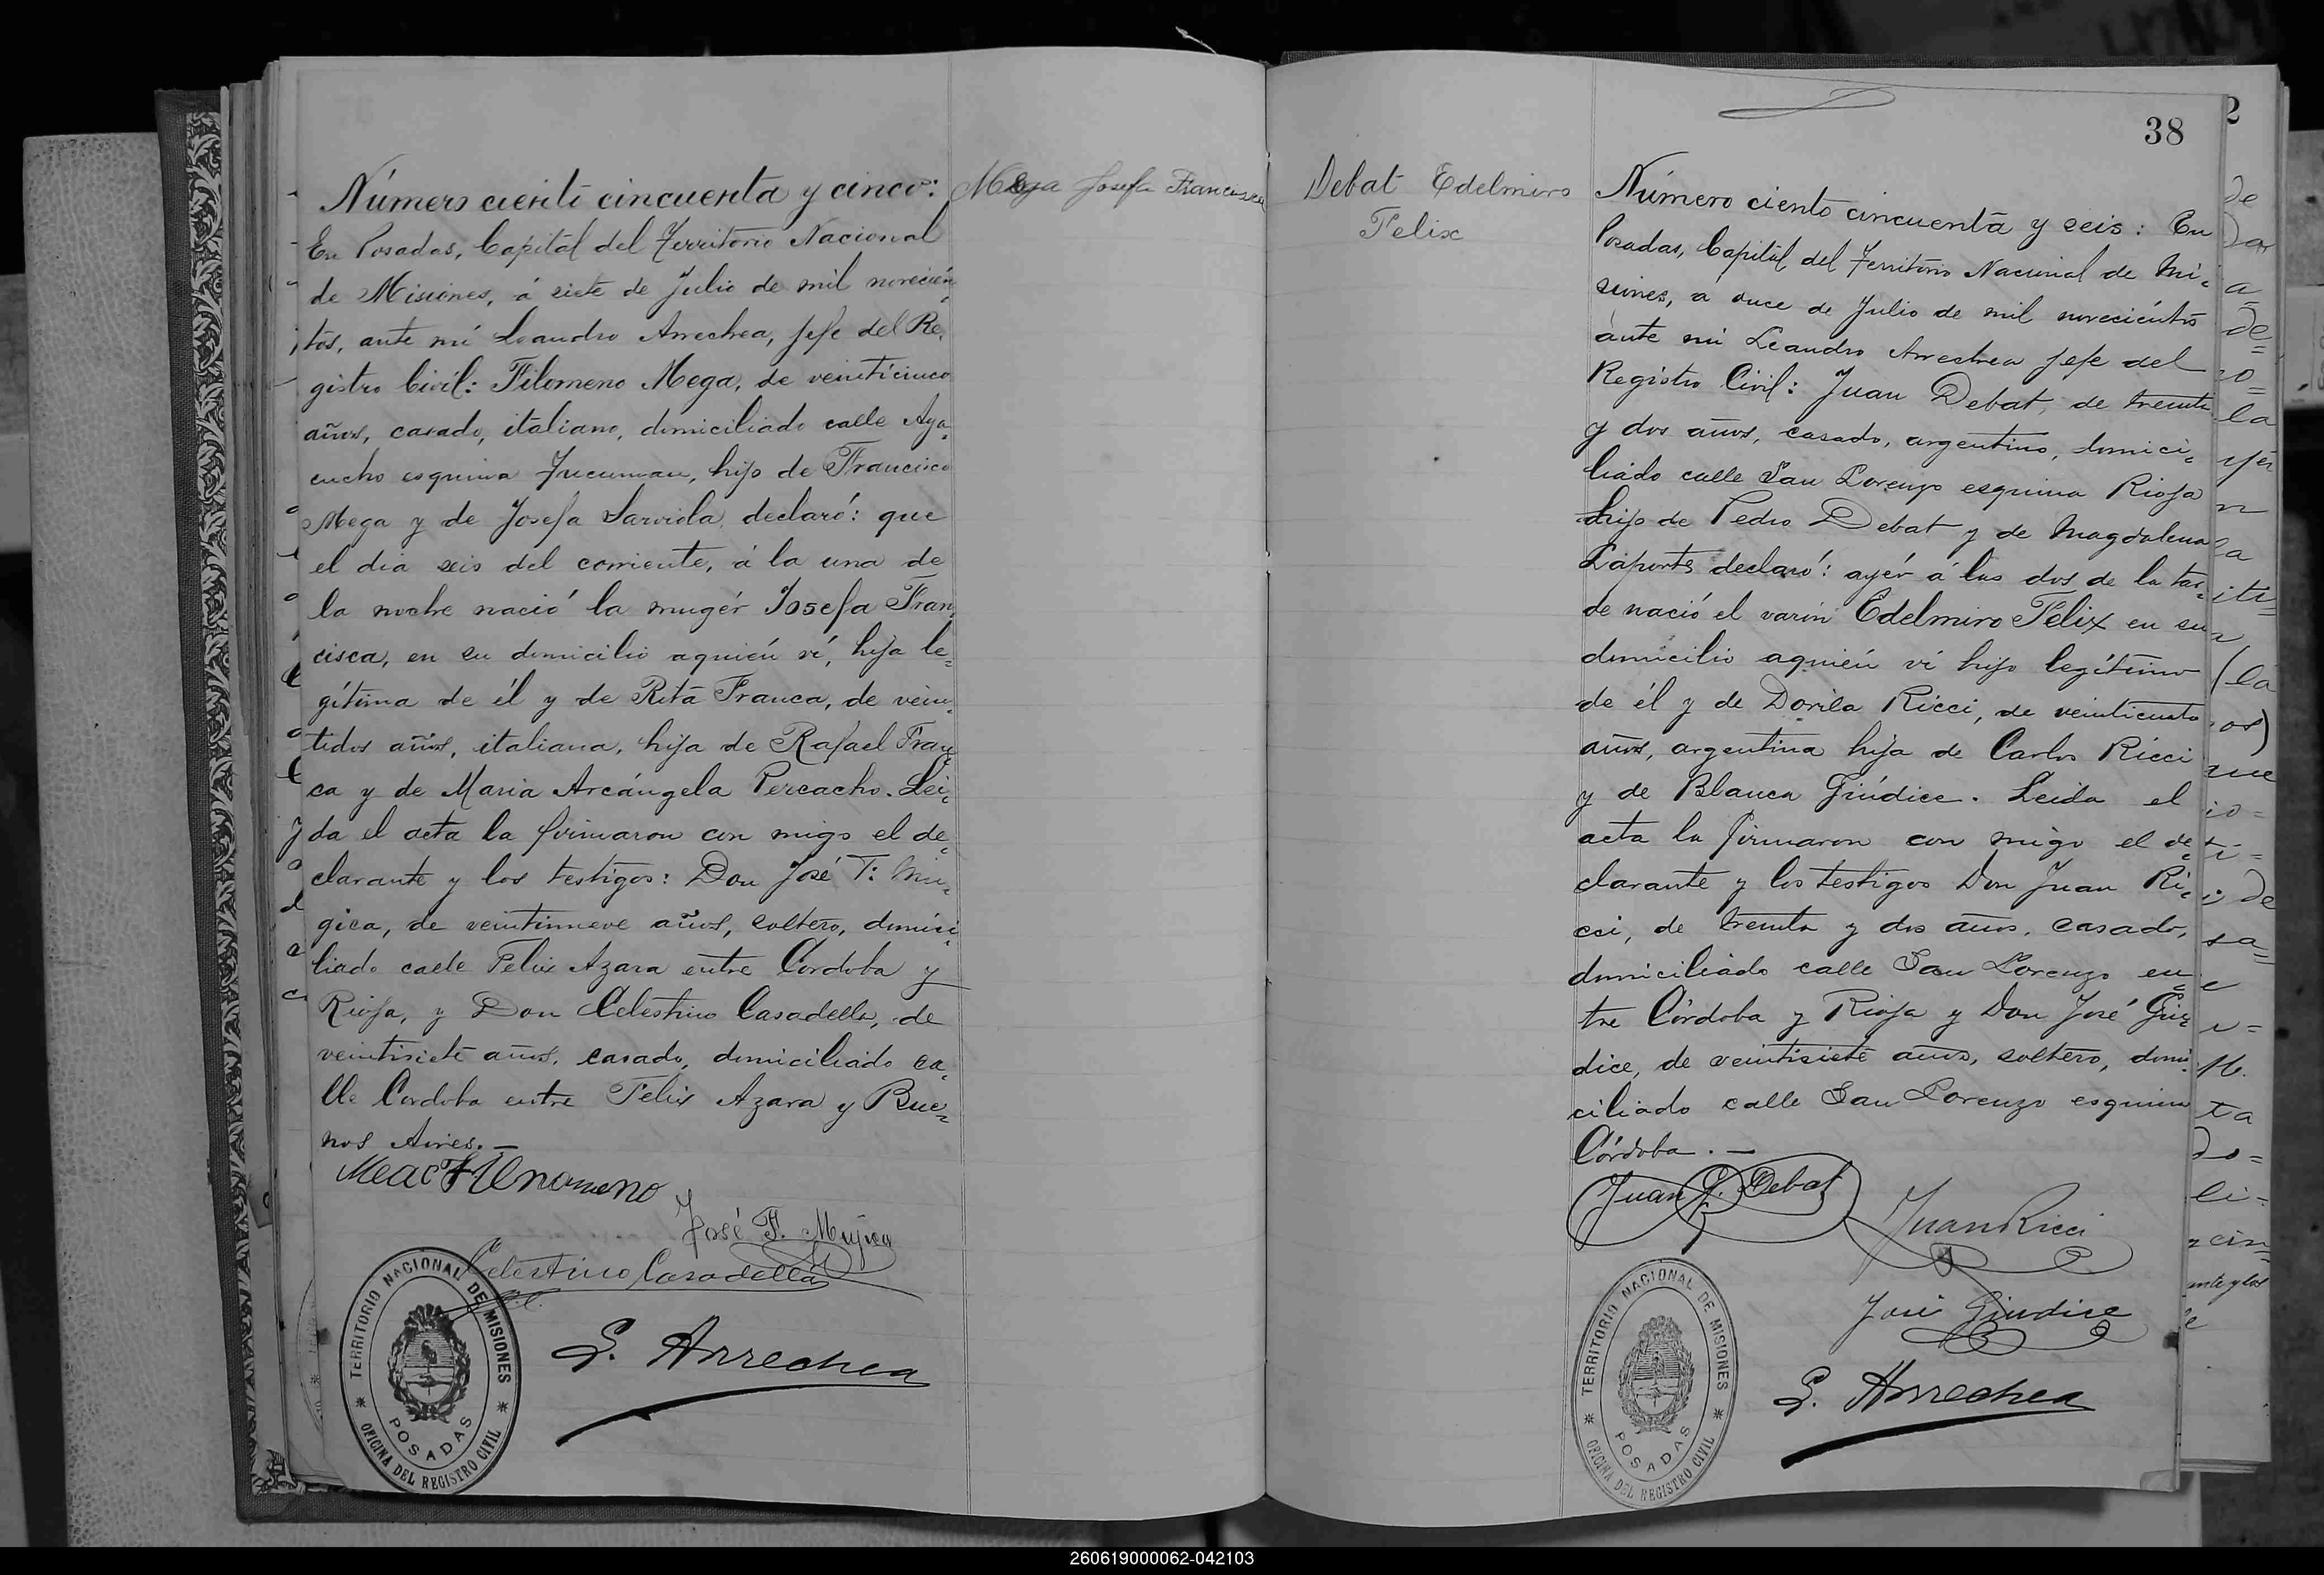 Número ciento cincuenta y cinco:
En Posadas, Capital del Territorio Nacional
de Misiones, á siete de Julio de mil novecien,
tos, ante mí Leandro Arrechea, Jefe del Re,
gistro Civil: Filomeno Mega, de veinticinco
años, casado, italiano, domiciliado calle Aya,
cucho esquina Tucuman, hijo de Francisco
Mega y de Josefa Sarviola, declaró: que
el dia seis del corriente, á la una de
la noche nació la mugér Josefa Fran,
cisca, en su domicilio aquién ví, hija le=
gítima de él y de Rita Franca, de vein,
tidos años, italiana, hija de Rafael Fran,
ca y de Maria Arcángela Percacho. Lei,
da el acta la firmaron con migo el de,
clarante y los testigos: Don José T: Mu,
gica, de veintinueve años, soltero, domici,
liado calle Felix Azara entre Córdoba y
Rioja, y Don Celestino Casadella, de
veintisiete años, casado, domiciliado ca,
lle Cordoba entre Felix Azara y Bue=
nos Aires.—
José F. Mujica
Celestino Casadella
L. Arrechea
TERRITORIO NACIONAL DE MISIONES
POSADAS
OFICINA DEL REGISTRO CIVIL
Mega Josefa Francisca
Debat Edelmiro
Felix
38
Número ciento cincuenta y seis: En
Posadas, Capital del Territorio Nacional de Mi,
siones, á once de Julio de mil novecientos
ante mi Leandro Arrechea Jefe del
Registro Civil: Juan Debat, de treinta
y dos años, casado, argentino, domici,
liado calle San Lorenzo esquina Rioja
hijo de Pedro Debat y de Magdalena
Laporte declaró: ayér á las dos de la tar,
de nació el varón Edelmiro Felix en su
domicilio aquién ví hijo legítimo
de él y de Dorila Ricci, de veinticuatro
años, argentina hija de Carlos Ricci
y de Blanca Giúdice. Leida el
acta la firmaron con migo el de,
clarante y los testigos Don Juan Ri,
cci, de treinta y dos años, casado,
domiciliado calle San Lorenzo en=
tre Córdoba y Rioja y Don José Giu,
dice, de veintisiete años, soltero, domi,
ciliado calle San Lorenzo esquina
Córdoba.—
Juan Debat
Juan Ricci
José Giudice
L. Arrechea
TERRITORIO NACIONAL DE MISIONES
POSADAS
OFICINA DEL REGISTRO CIVIL
260619000062-042103